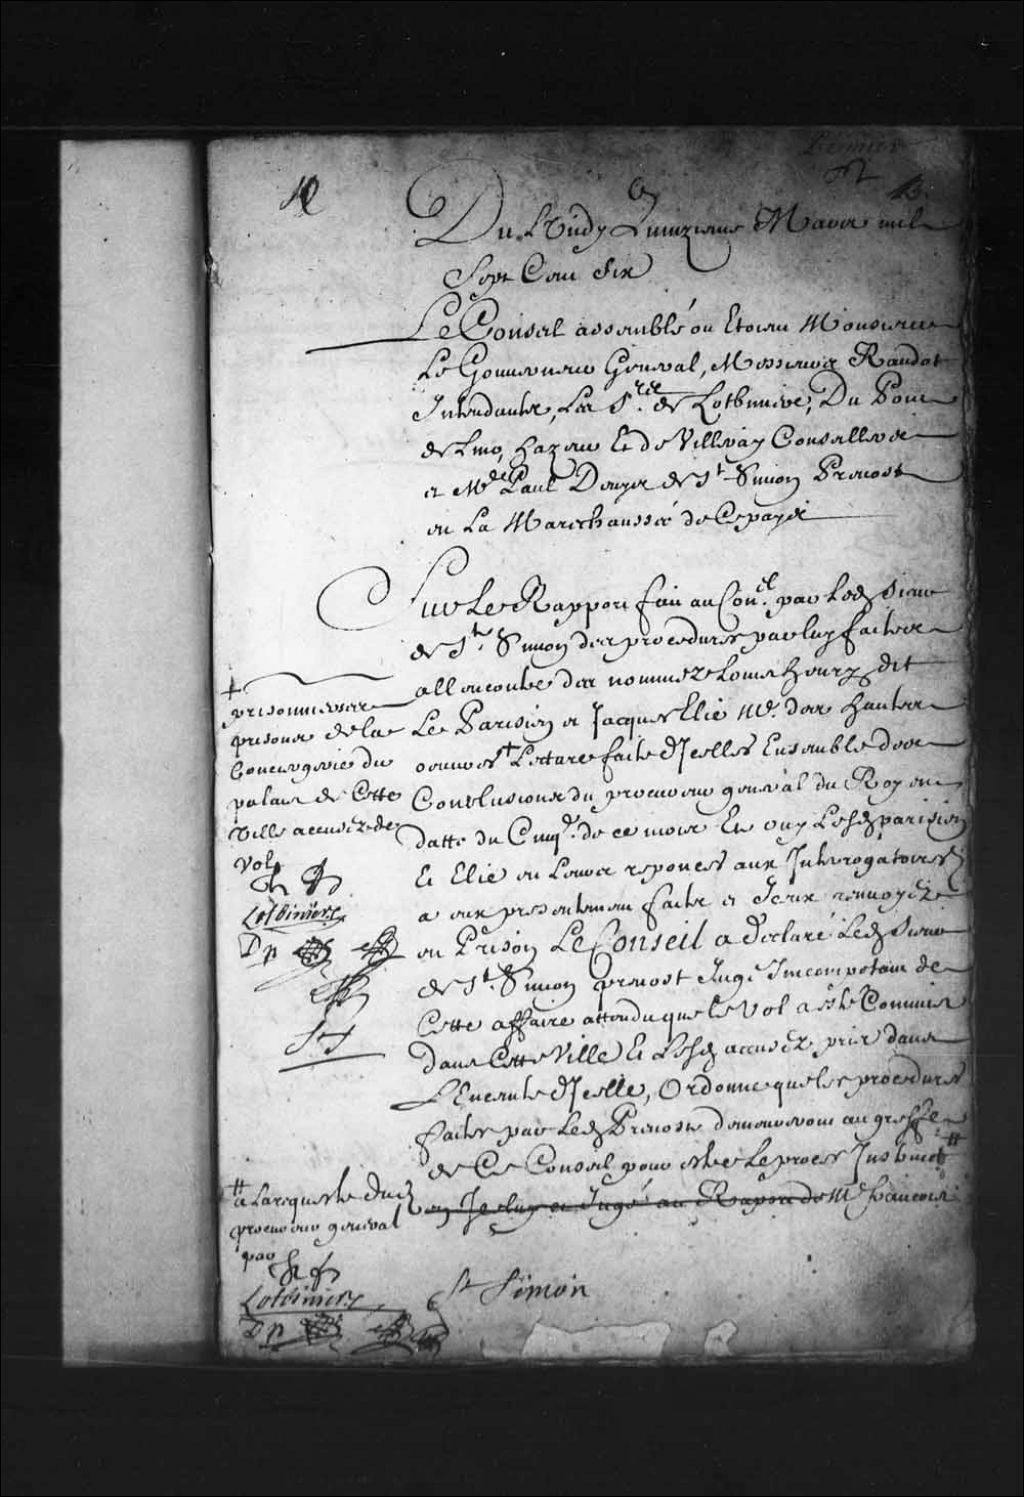 Du Lundy Quinzieme Mars mil
Sept Cent Six
Le Conseil assemblé ou Etoient Monsieur
Le Gouverneur General, Messieurs Raudot
Intendants, Les Srs. de Lotbiniere, Du Pont
de Lino, hazeur Et de Villeray Conseillers
et Me Paul Denys de St Simon Prevost
en La Marechaussée de Ce pays
Sur Le Rapport fait au Conel. par Ledt Sieur
de St. Simon des procedures par luy faites
allencontre des nommez Louis henry dit
Le Parisien et Jacques Elie Me. des hautes
oeuvres + Lecture faite d'Jcelles Ensemble des
Conclusions du procureur general du Roy en
datte du Cinqe. de ce mois Et ouy Lesdts parisien
Et Elie en Leurs reponces aux Interrogatoires
a eux presentement faits et Jceux renvoyéz
en Prison Le Conseil a declaré Ledt Sieur
de St. Simon prevost Juge Incompetent de
Cette affaire attendu que le vol a esté Commis
dans Cette Ville Et Lesdts accusez pris dans
L'Enceinte d'Jcelle, Ordonne que les procedures
faites par Ledt Prevost demeureront au greffe
de Ce Conseil pour estre Le procez Instruit #
en Jceluy et Jugé au Rapport de Me francois
St Simon
+
prisonniers es
prisons de la
Conciergerie du
palais de Cette
Ville accusez de
vol
Lotbiniere
Dp
# a La requeste dudt
procureur general
par
Lotbiniere
Dp